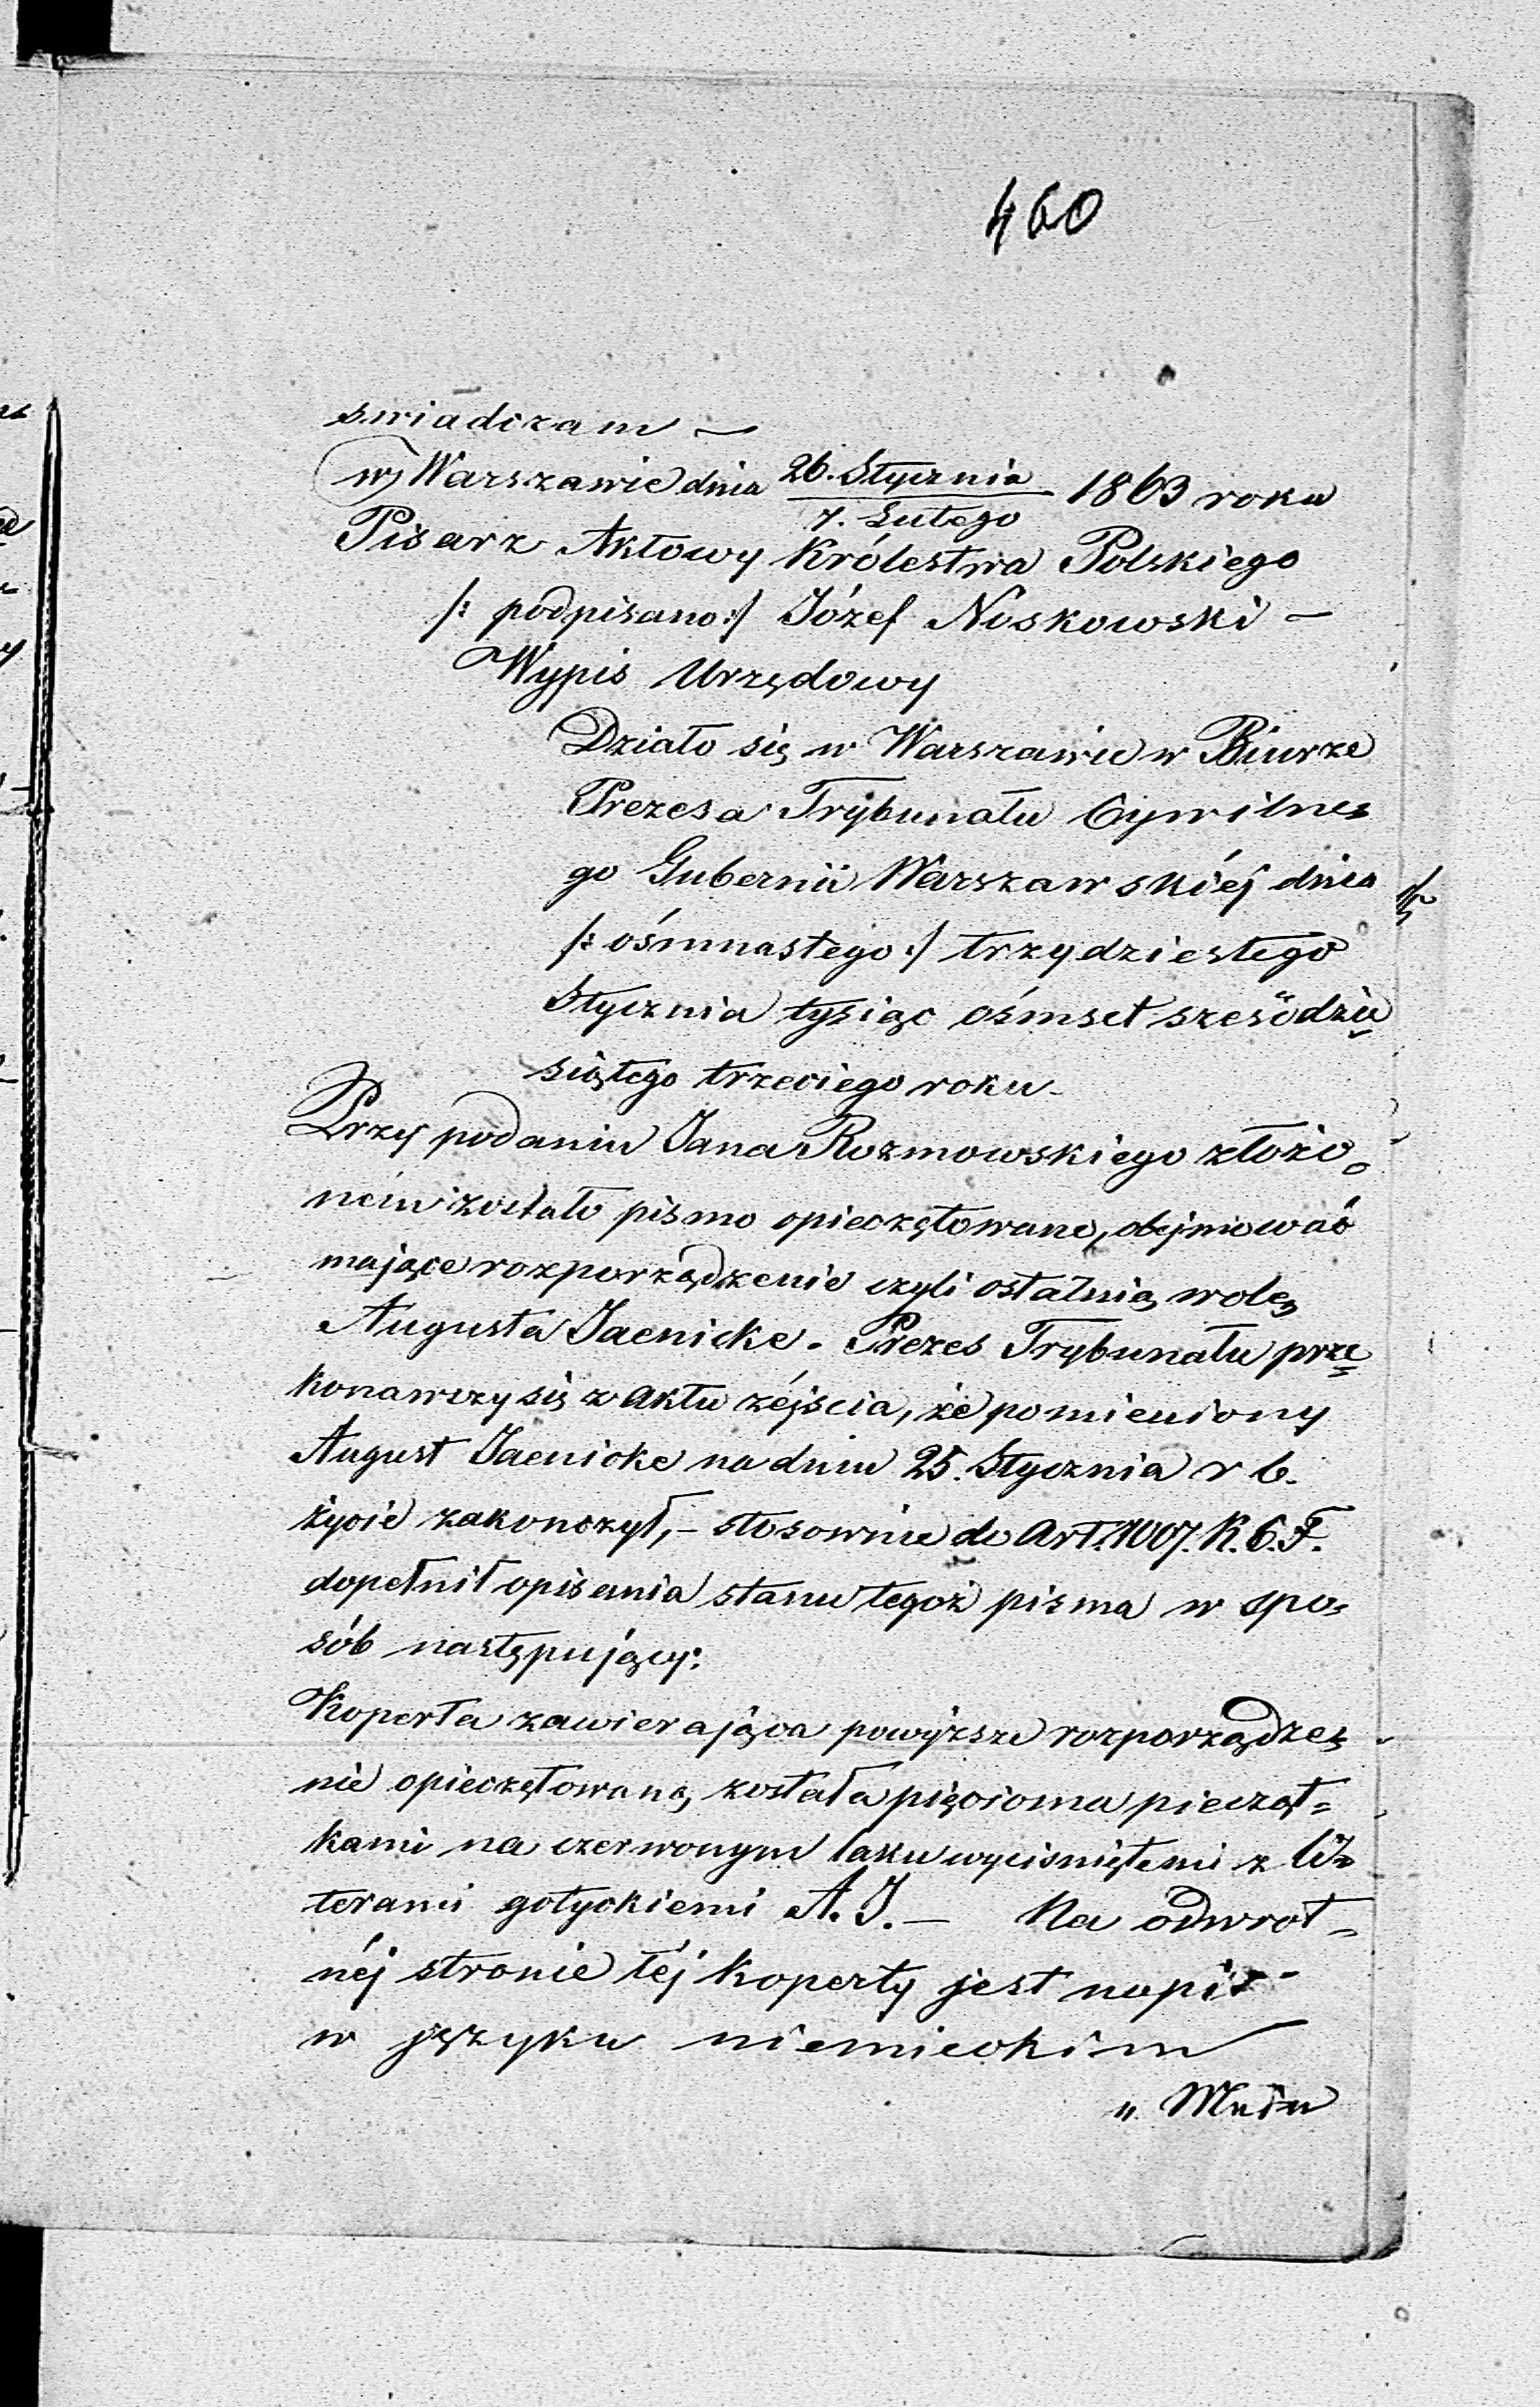 460
swiadczam —
w Warszawie dnia 26. Stycznia / 7. Lutego 1863 roku
Pisarz Aktowy Królestwa Polskiego
/: podpisano :/ Józef Noskowski —
Wypis Urzędowy
Działo się w Warszawie w Biurze
Prezesa Trybunału Cywilne=
go Gubernii Warszawskiéj dnia
/: ośmnastego :/ trzydziestego
Stycznia tysiąc ośmset sześćdzie=
siątego trzeciego roku.
Przy podaniu Jana Rozmowskiego złożo=
ném zostało pismo opieczętowane, obejmować
mające rozporządzenie czyli ostatnią wolę
Augusta Jaenicke. Prezes Trybunału prze=
konawszy się z aktu zéjścia, że pomieniony
August Jaenicke na dniu 25. Stycznia r b.
życie zakonczył, – stosownie do Art. 1007. K. C. F.
dopełnił opisania stanu tegoż pisma w spo=
sób następujący:
Koperta zawierająca powyższe rozporządze=
nie opieczętowaną została pięcioma piecząt=
kami na czerwonym laku wyciśniętemi z li=
terami gotyckiemi A. J. — Na odwrot=
néj stronie téj koperty jest napis
w języku niemieckim
„ Mein